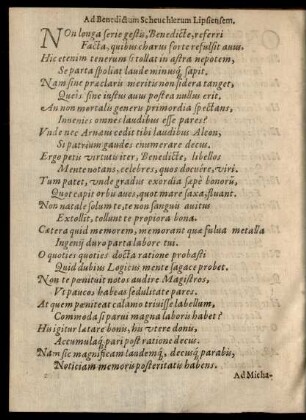 Ad Benedictum Scheuchlerum Lipsiensem.
NOn longa serie gestũ, Benedicte, referri
Facta, quibus charus forte refulsit auus.
Hic etenim tenerum si tollat in astra nepotem,
Se parta spoliat laude minusq́; sapit.
Nam sine præclaris meritis non sidera tanget,
Queis sine iustus auus postea nullus erit.
An non mortalis generis primordia spectans,
Inuenies omnes laudibus esse pares?
Vnde nec Arnani cedit tibi laudibus Alcon,
Si patrium gaudes enumerare decus.
Ergo petis virtutis iter, Benedicte, libellos
Mente notans, celebres, quos docuêre, viri.
Tum patet, vnde gradus exordia sapẽ bonorũ,
Quot capit orbis aues, quot mare saxa, fluant.
Non natale solum te, te non sanguis auitus
Extollit, tollunt te propiora bona.
Cætera quid memorem, memorant quæ fulua metalla
Ingenij duro parta labore tui.
O quoties quoties docta ratione probasti
Quid dubius Logicus mente sagace probet.
Non te pœnituit notos audire Magistros,
Vt paucos habeas sedulitate pares.
At quem pœniteat calamo triuisse labellum,
Commoda si parui magna laboris habet?
His igitur lætare bonis, his vtere donis,
Accumulaq́; pari post ratione decus.
Nam sic magnificam laudemq́;, decusq́; parabis,
Notitiam memori posteritatis habens.
Ad Micha-